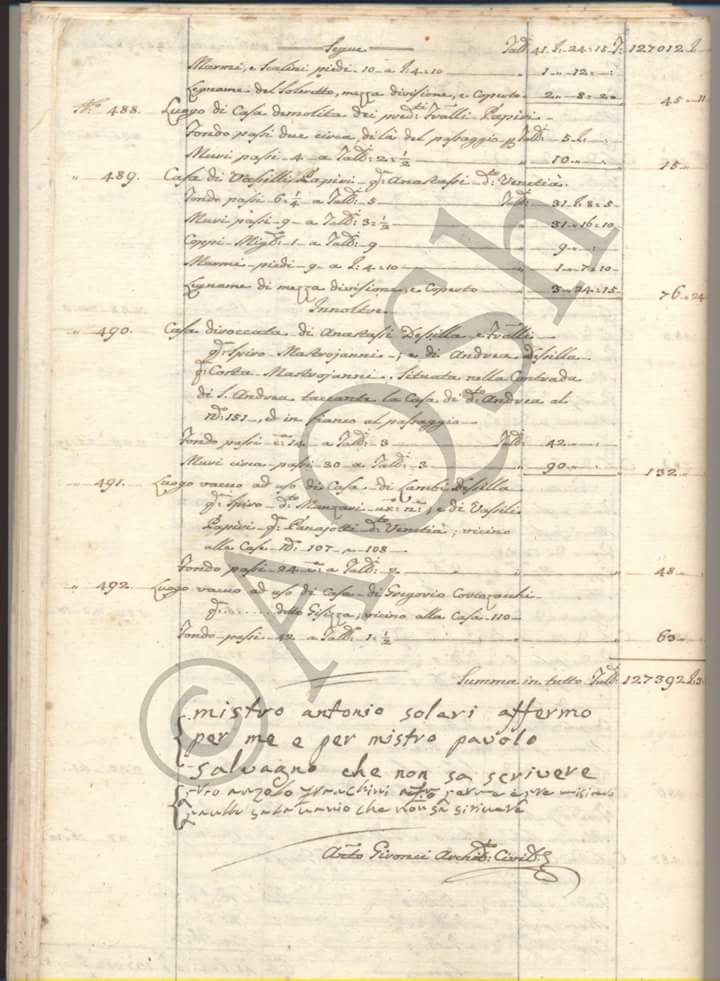 Segue Tall: 41. L: 24=15. T: 127012. L
Marmi, e Scalini piedi 10 a L: 4=10 " 1 " 12=
Legname del Soleretto, mezza divisione, e Coperto 2 " 8= 2 45 " 11
N.º 488. Luogo di Casa demolita dei pred:ti Fr̃alli Papivi
Fondo passi due circa, di là del passaggio p Tall: 5. L:
Muri passi 4 a Tall: 2=½ 10 " 15 "
" 489. Casa di Vassilli Papivi q: Anastasi d:to Venetià.
Fondo passi 6=¼ a Tall: 5 Tall: 31. L: 8=5
Muri passi 9 a Tall: 3=½ " 31 " 16=10
Coppi Migl: 1 a Tall: 9 " 9 "
Marmi piedi 9 a L: 4=10 " 1 " 7=10
Legname di mezza divisione, e Coperto " 3 " 24=15 76 " 24
Innoltre.
" 490. Casa diroccata di Anastasi Dessilla e Fr̃alli
q: Spiro Mastrojanni ; e di Andrea Dessilla
q: Costa Mastrojanni. Situata nella Contrada
di S. Andrea taccante la Casa di d:to Andrea al
N:º 151, ed in fianco al passaggio
Fondo passi c:a 14 a Tall: 3 Tall: 42 "
Muri circa passi 30 a Tall: 3 " 90 " 132 "
" 491. Luogo vacuo ad uso di Casa di Lambi Dessilla
q: Spiro d:to Manzavi ; e di Vassili
Papivi q: Panajotti d:to Venetià ; vicino
alle Case N: 107 e 108
Fondo passi 24 a Tall: 2 " " 48 "
" 492. Luogo vacuo ad uso di Casa di Gregorio
q: ..... detto Gisizza ; vicino alla Casa 110
Fondo passi 42 a Tall: 1=½ " " 63 "
Summa in tutto Tall: 127392. L: 3
mistro antonio solari affermo
per me e per mistro pavolo
salvagno che non sa scrivere
che non sa scrivere
Ant:º Gironci Archit:to Civil:e
©AQSh